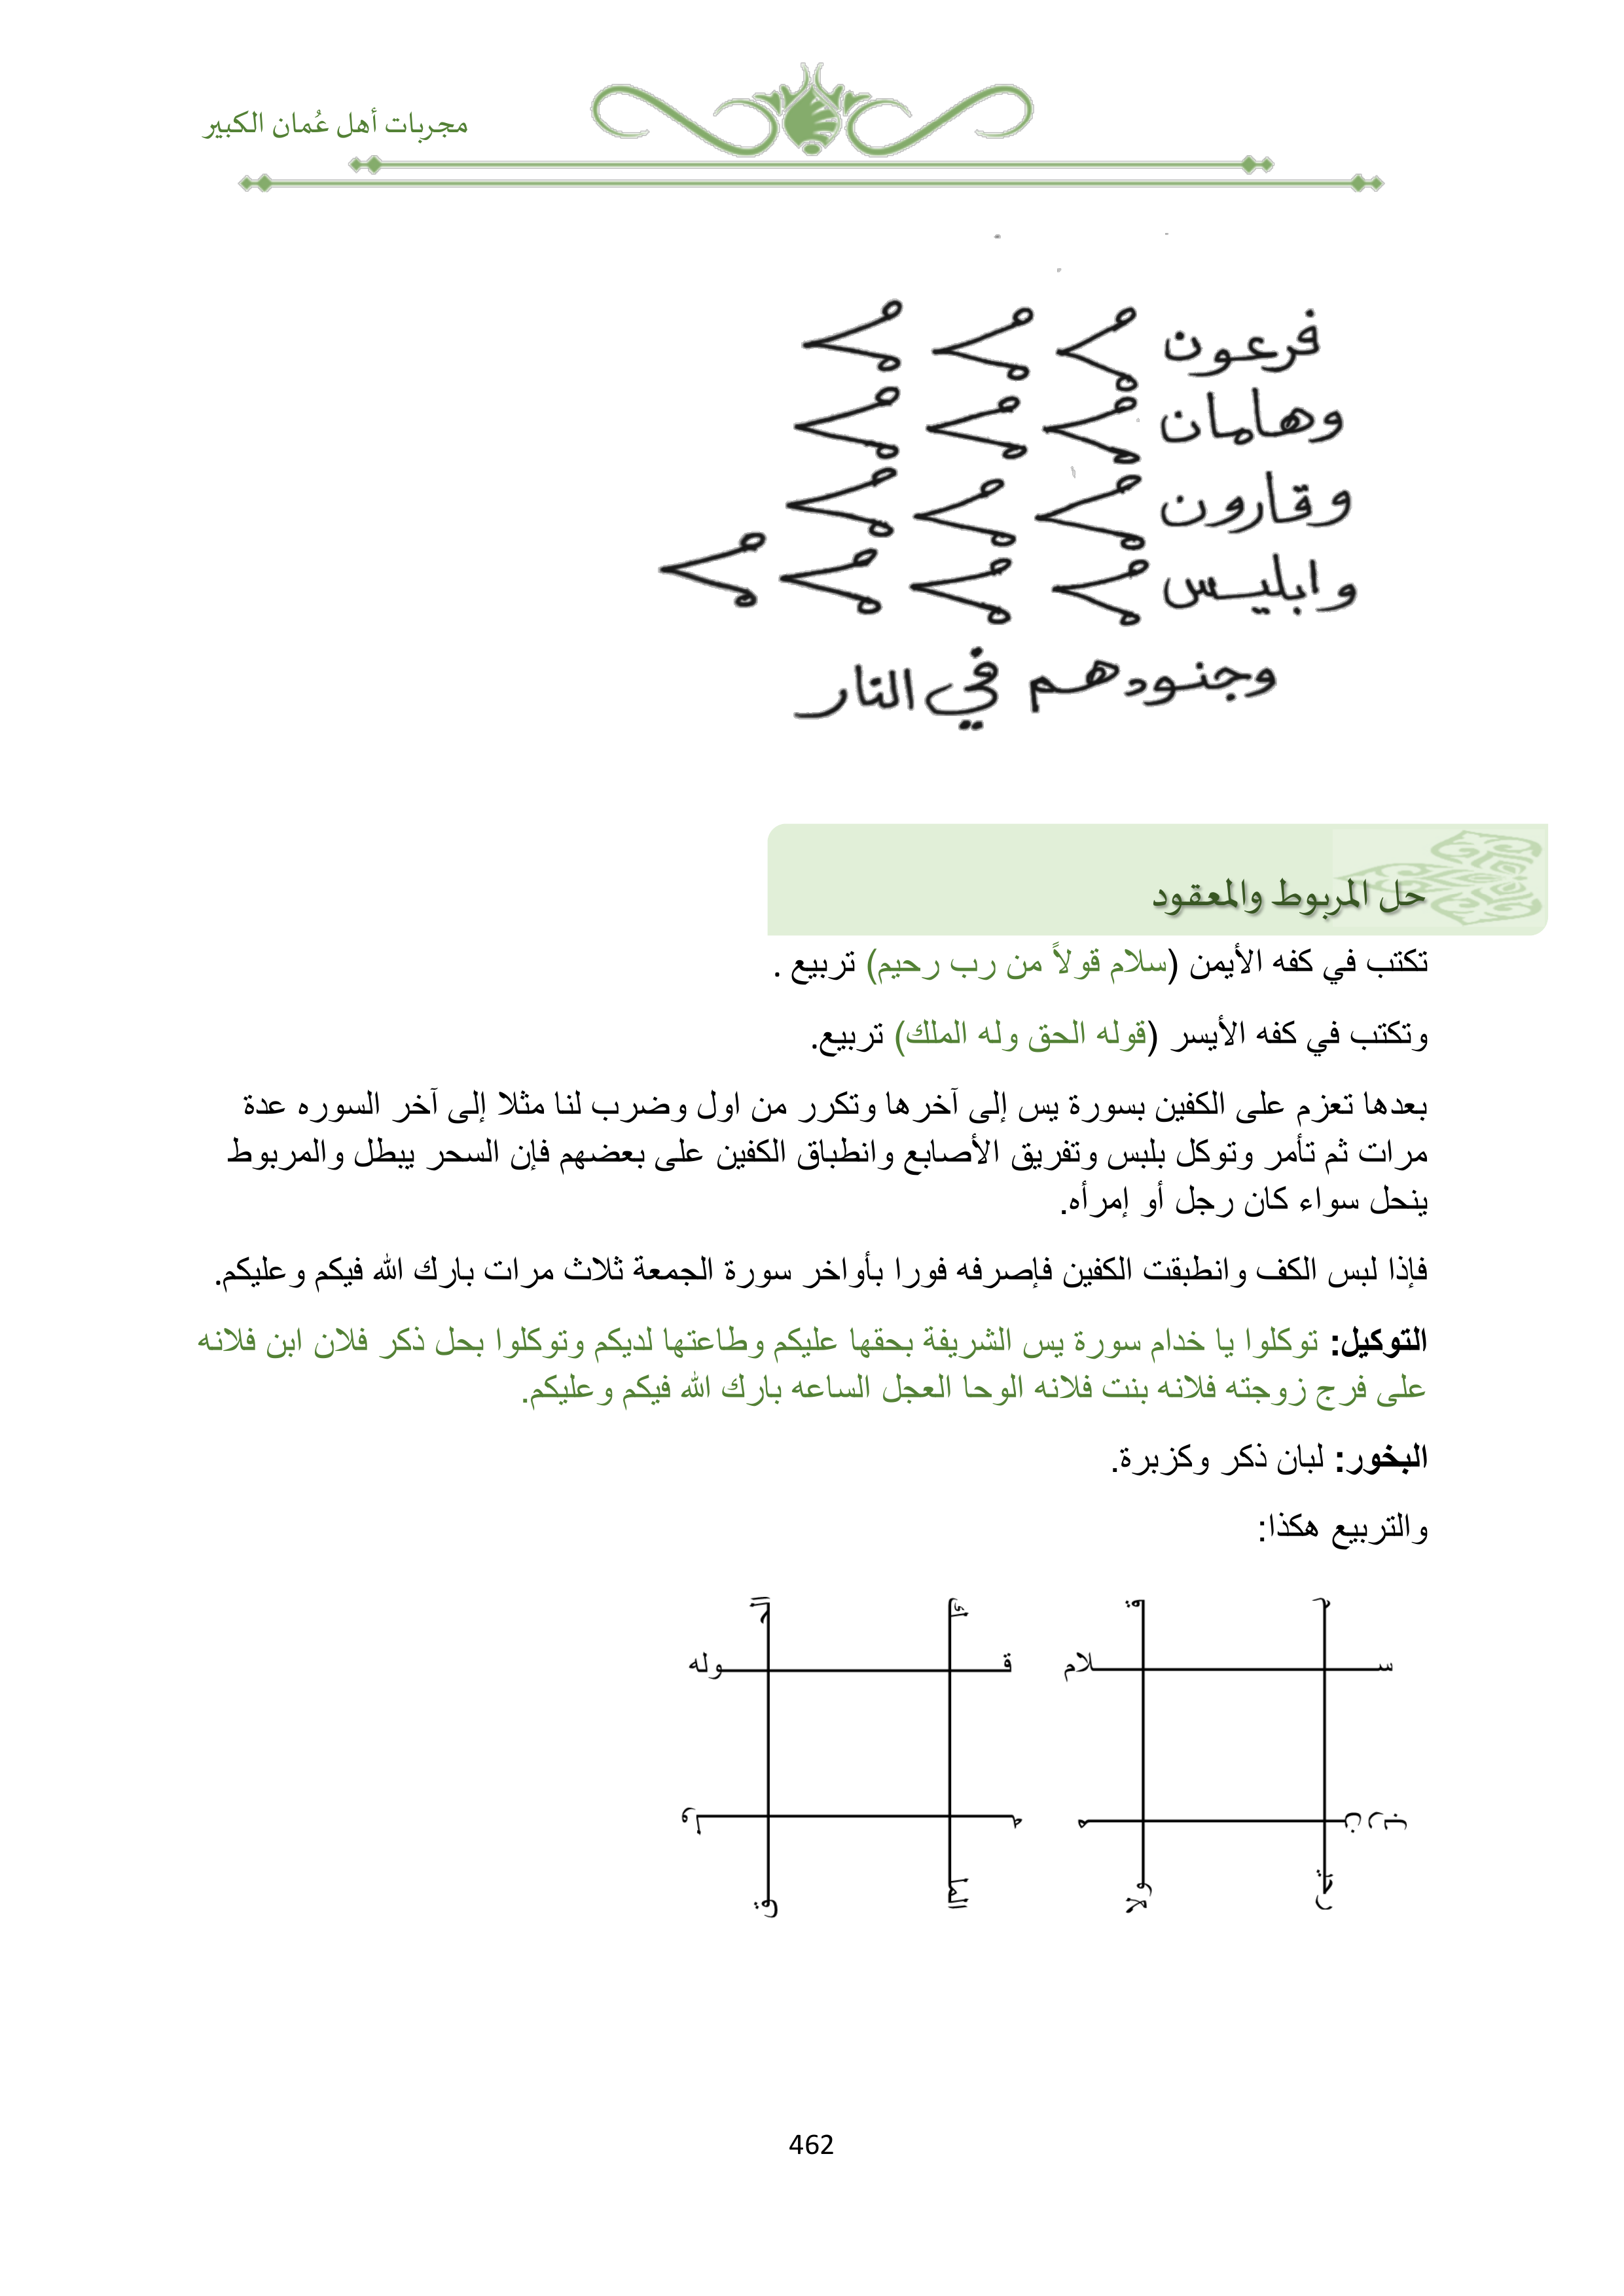 مجربات أهل عُمان الكبير
فرعون
وهامان
وقارون
وابليس
وجنودهم في النار
حل المربوط والمعقود
تكتب في كفه الأيمن (سلام قولاً من رب رحيم) تربيع .
وتكتب في كفه الأيسر (قوله الحق وله الملك) تربيع.
بعدها تعزم على الكفين بسورة يس إلى آخرها وتكرر من اول وضرب لنا مثلا إلى آخر السوره عدة
مرات ثم تأمر وتوكل بلبس وتفريق الأصابع وانطباق الكفين على بعضهم فإن السحر يبطل والمربوط
ينحل سواء كان رجل أو إمرأه.
فإذا لبس الكف وانطبقت الكفين فإصرفه فورا بأواخر سورة الجمعة ثلاث مرات بارك الله فيكم وعليكم.
التوكيل: توكلوا يا خدام سورة يس الشريفة بحقها عليكم وطاعتها لديكم وتوكلوا بحل ذكر فلان ابن فلانه
على فرج زوجته فلانه بنت فلانه الوحا العجل الساعه بارك الله فيكم وعليكم.
البخور: لبان ذكر وكزبرة.
والتربيع هكذا:
م ق ك الح
س لام ق وله
ن رب م ه ول
رحي ولا الملـ ق
462